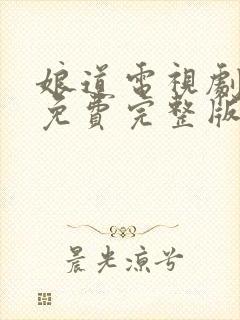 娘道電視劇
免費完整版
晨光涼兮